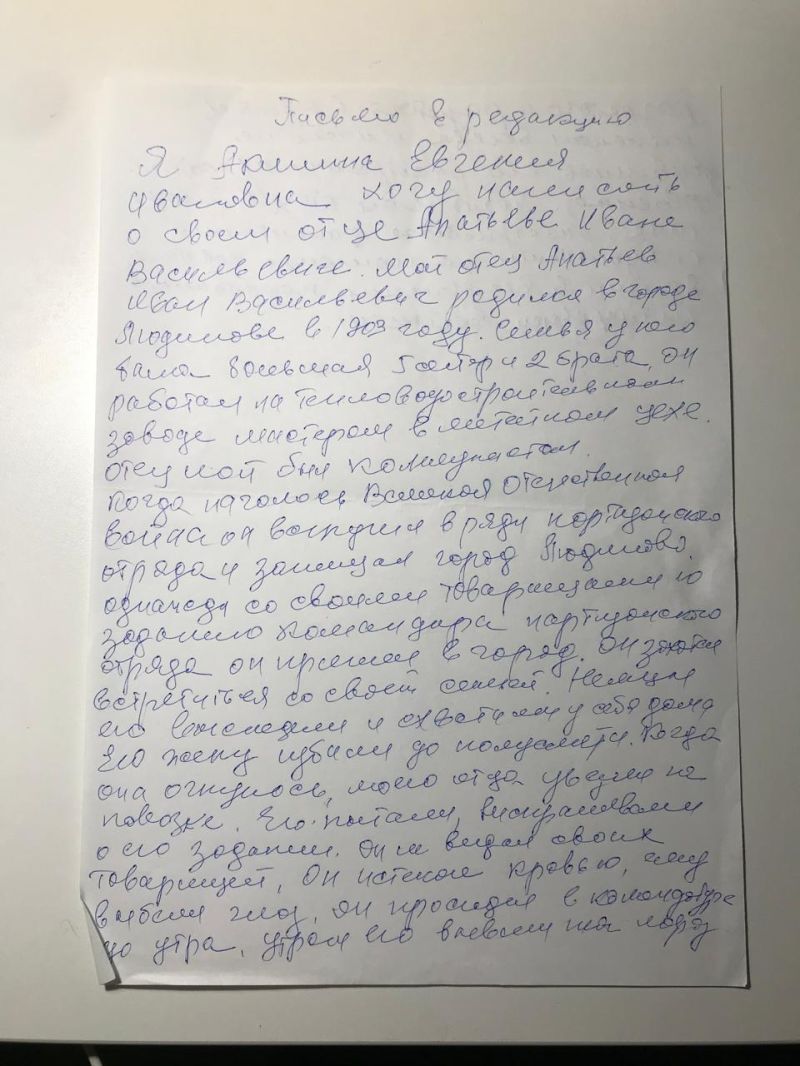 Письмо в редакцию
Я Акинина Евгения
Ивановна хочу написать
о своем отце Апатьеве Иване
Васильевиче. Мой отец Апатьев
Иван Васильевич родился в городе
Людинове в 1903 году. Семья у него
была большая 5 сестер и 2 брата. Он
работал на Тепловозостроительном
заводе мастером в цехе.
отец мой был коммунистом.
Когда началось Великая Отечественная
война он вступил в ряды партизанского
отряда и защищал город Людиново.
однажды со своими товарищами по
заданию командира партизанского
отряда он пришел в город. Он захотел
встретиться со своей семьей. Немцы
его выследили и схватили у себя дома
Его жену избили до полусмерти. Когда
она очнулось, моего отца увезли на
повозке. Его пытали, выспрашивали
о его задании. Он не выдал своих
товарищей, Он истекал кровью, ему
выбили глаз, он просидел в комендатуре
до утра, утром его вывели на мороз